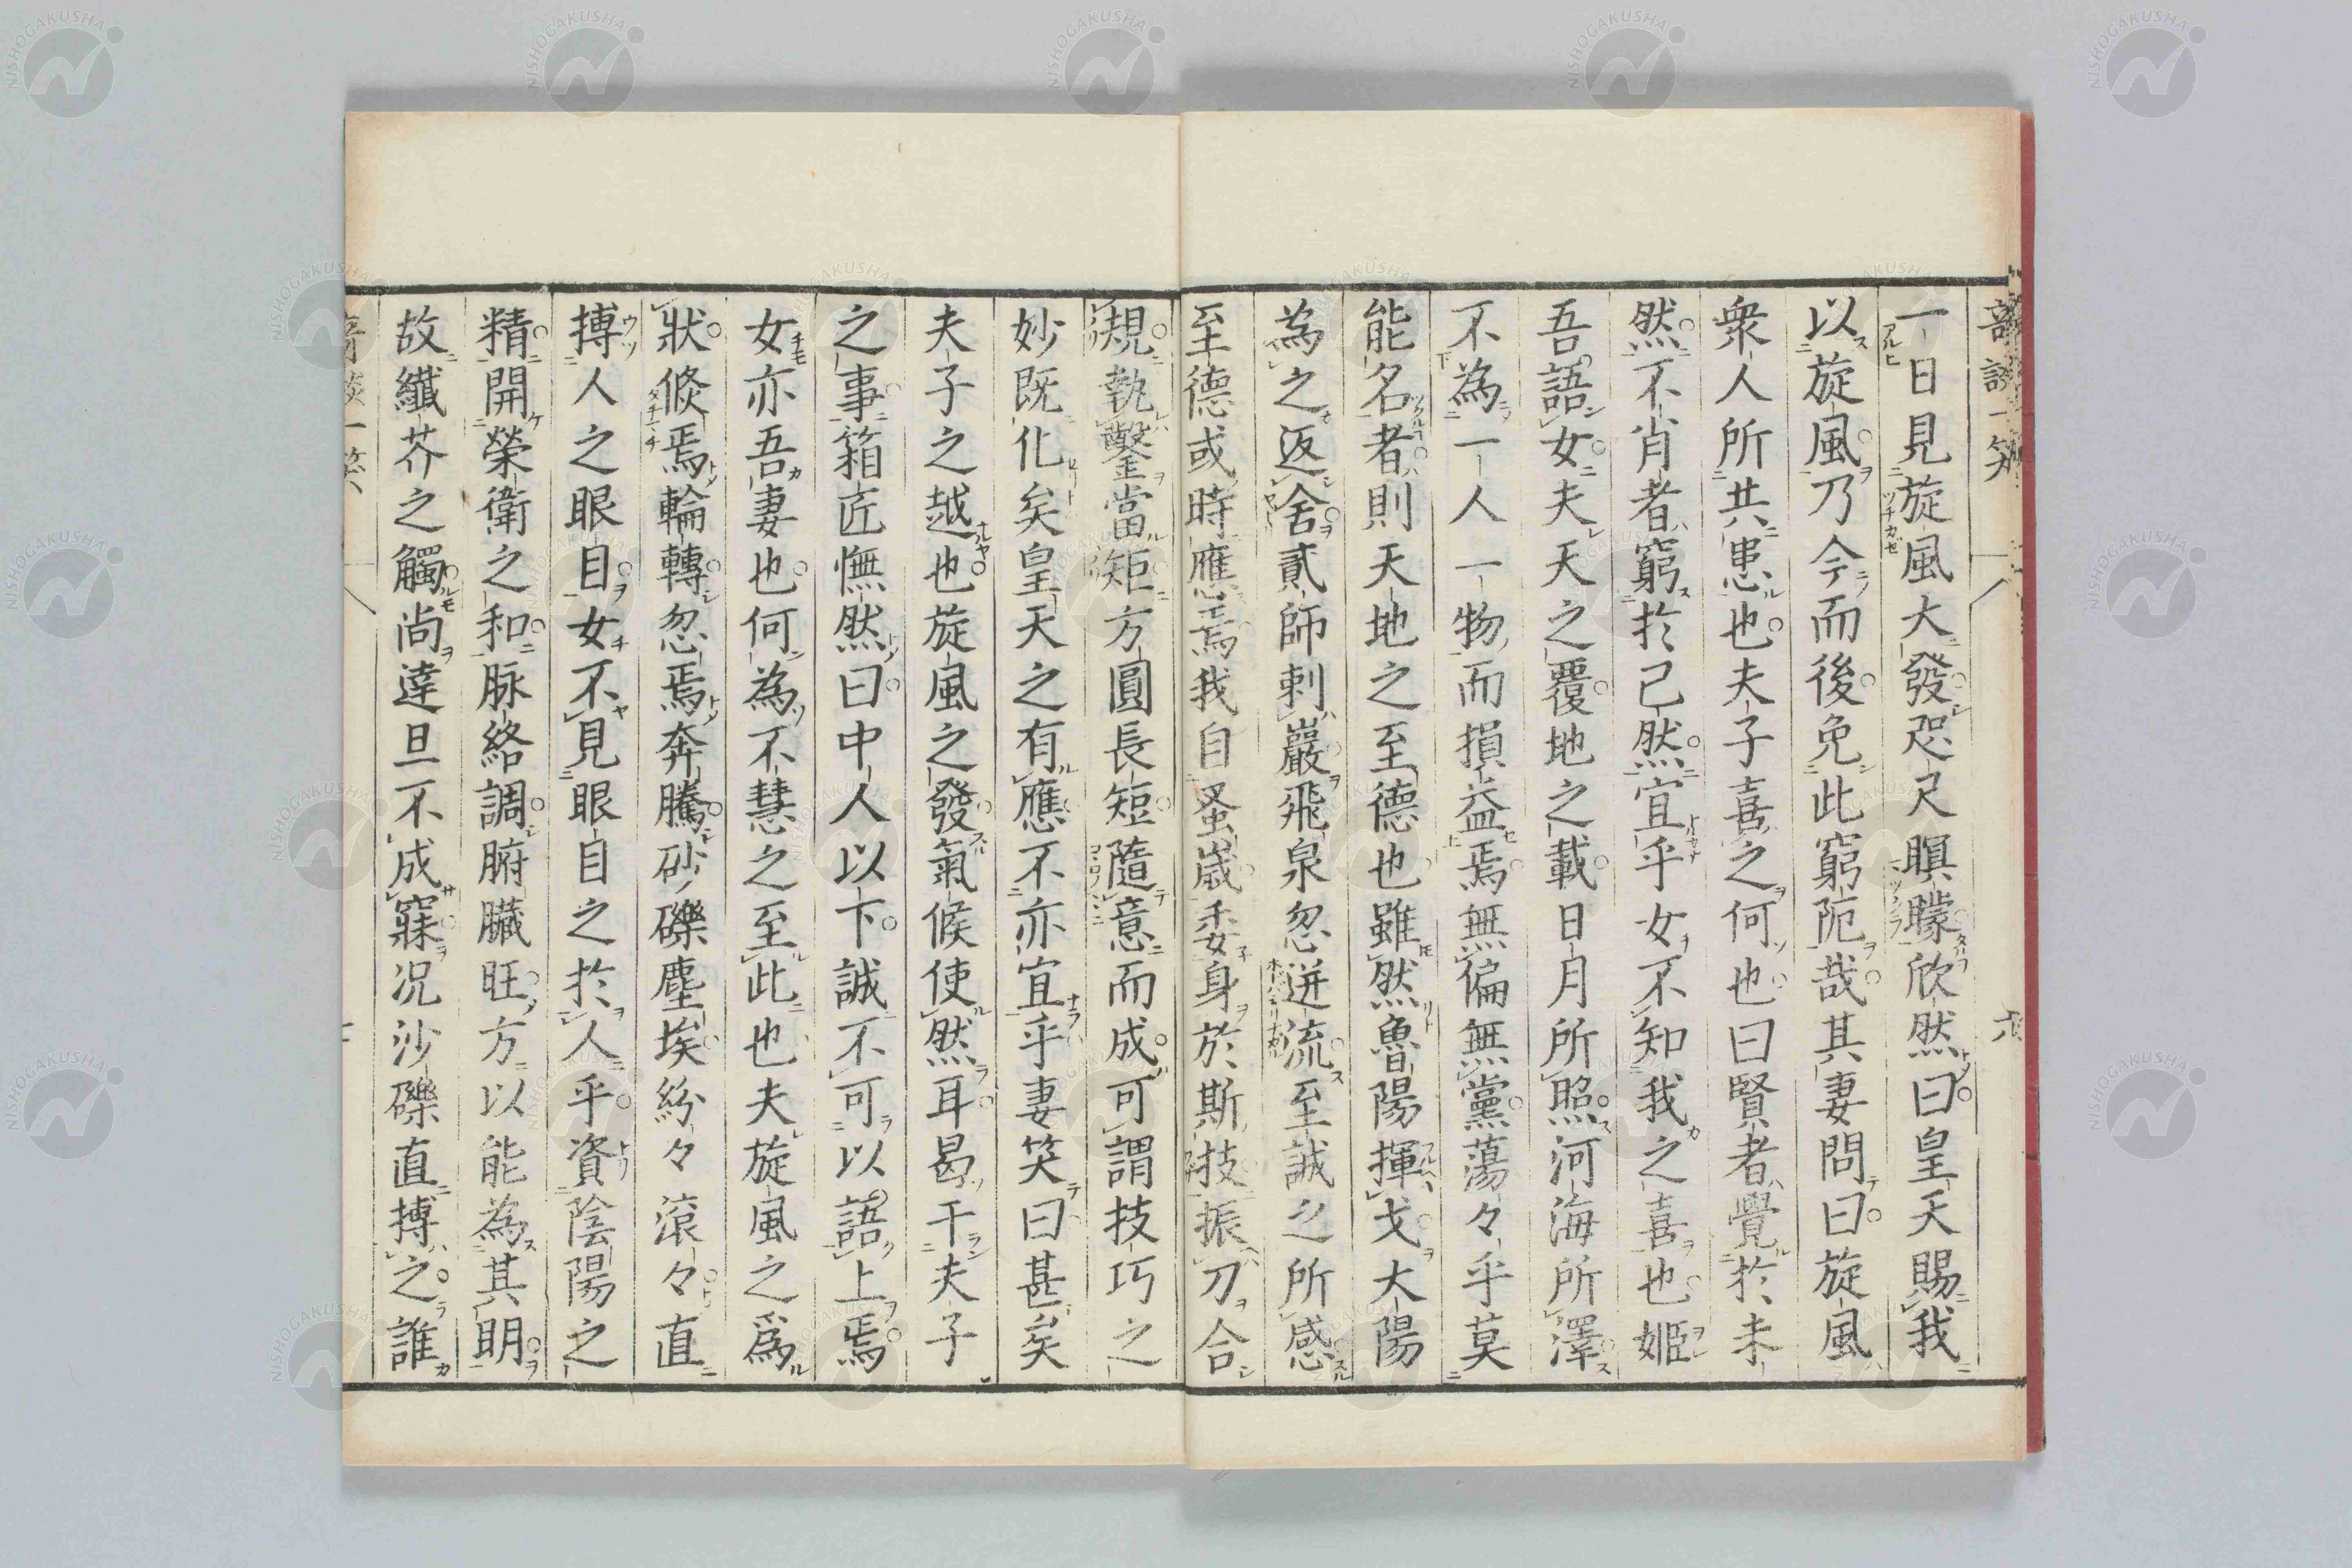 一日見旋風大發咫尺瞑矇欣然曰皇天賜我
以旋風乃今而後免此窮阨哉其妻問曰旋風
衆人所共患也夫子喜之何也曰賢者覺於未
然不肖者窮於已然宜乎女不知我之喜也姬
吾語女夫天之覆地之載日月所照河海所澤
不為一人一物而損益焉無偏無黨蕩々乎莫
能名者則天地之至德也雖然魯陽揮戈大陽
為之返舍貳師刺巖飛泉忽迸流至誠之所感
至德或時應焉我自蚤歲委身於斯技振刀合
規執鑿當矩方圓長短隨意而成可謂技巧之
妙既化矣皇天之有應不亦宜乎妻笑曰甚矣
夫子之越也旋風之發氣候使然耳曷干夫子
之事箱匠憮然曰中人以下誠不可以語上焉
女亦吾妻也何為不慧之至此也夫旋風之爲
狀倏焉輪轉忽焉奔騰砂礫塵埃紛々滾々直
搏人之眼目女不見眼目之於人乎資陰陽之
精開榮衛之和脉絡調腑臓旺方以能為其明
故纖芥之觸尚達旦不成寐况沙礫直搏之誰
六
NISHOGAKUSHA